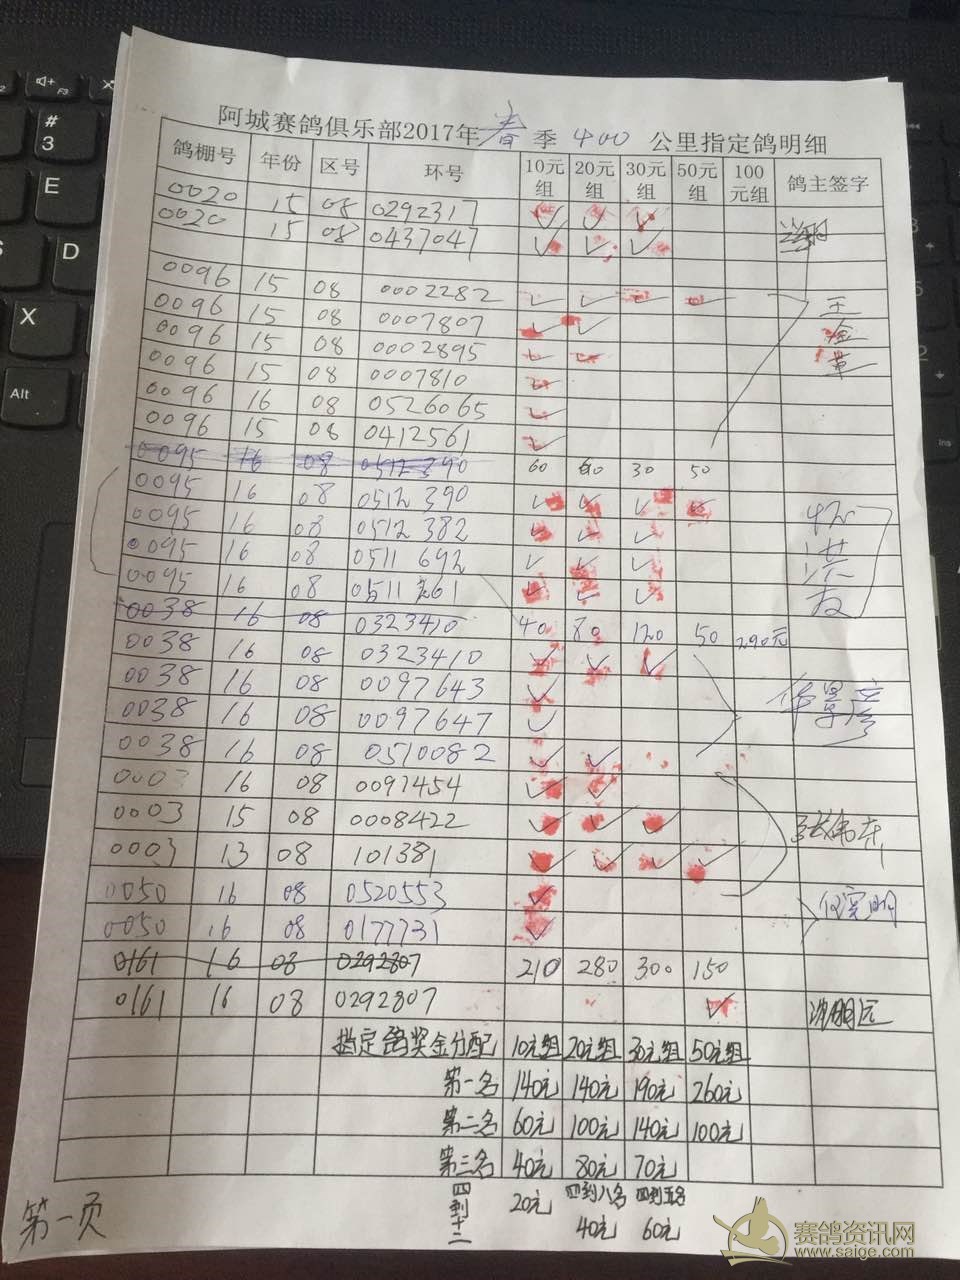 阿城赛鸽俱乐部2017年春季 400 公里指定鸽明细
鸽棚号 年份 区号 环号 10元组 20元组 30元组 50元组 100元组 鸽主签字
0020 15 08 0292317 ✓ ✓ ✓
0020 15 08 0437047 ✓ ✓ ✓
0096 15 08 0002282 ✓ ✓ ✓ ✓ 王
0096 15 08 0007807 ✓ ✓ 金
0096 15 08 0002895 ✓ ✓ 革
0096 15 08 0007810 ✓
0096 16 08 0526065 ✓
0096 15 08 0412561 ✓
0095 16 08 0512390 60 40 30 50
0095 16 08 0512390 ✓ ✓ ✓ ✓
0095 16 08 0512382 ✓ ✓ ✓ 洪
0095 16 08 0511692 ✓ ✓ ✓ 友
0095 16 08 0511261 ✓ ✓ ✓
0038 16 08 0323410 40 80 120 50 290元
0038 16 08 0323410 ✓ ✓ ✓
0038 16 08 0097643 ✓ 华景彦
0038 16 08 0097647 ✓
0038 16 08 0510082 ✓ ✓
0003 16 08 0097454 ✓ ✓
0003 15 08 0008422 ✓ ✓ ✓ 张伟东
0003 13 08 101381 ✓ ✓ ✓ ✓
0050 16 08 0520553 ✓
0050 16 08 0177731 ✓
0161 16 08 0292807 210 280 300 150
0161 16 08 0292807 ✓ 沈明远
指定鸽奖金分配 10元组 20元组 30元组 50元组
第一名 140元 140元 190元 260元
第二名 60元 100元 140元 100元
第三名 40元 80元 70元
四到十二 20元 四到八名 40元 四到五名 60元
第一页
赛鸽资讯网
www.saige.com